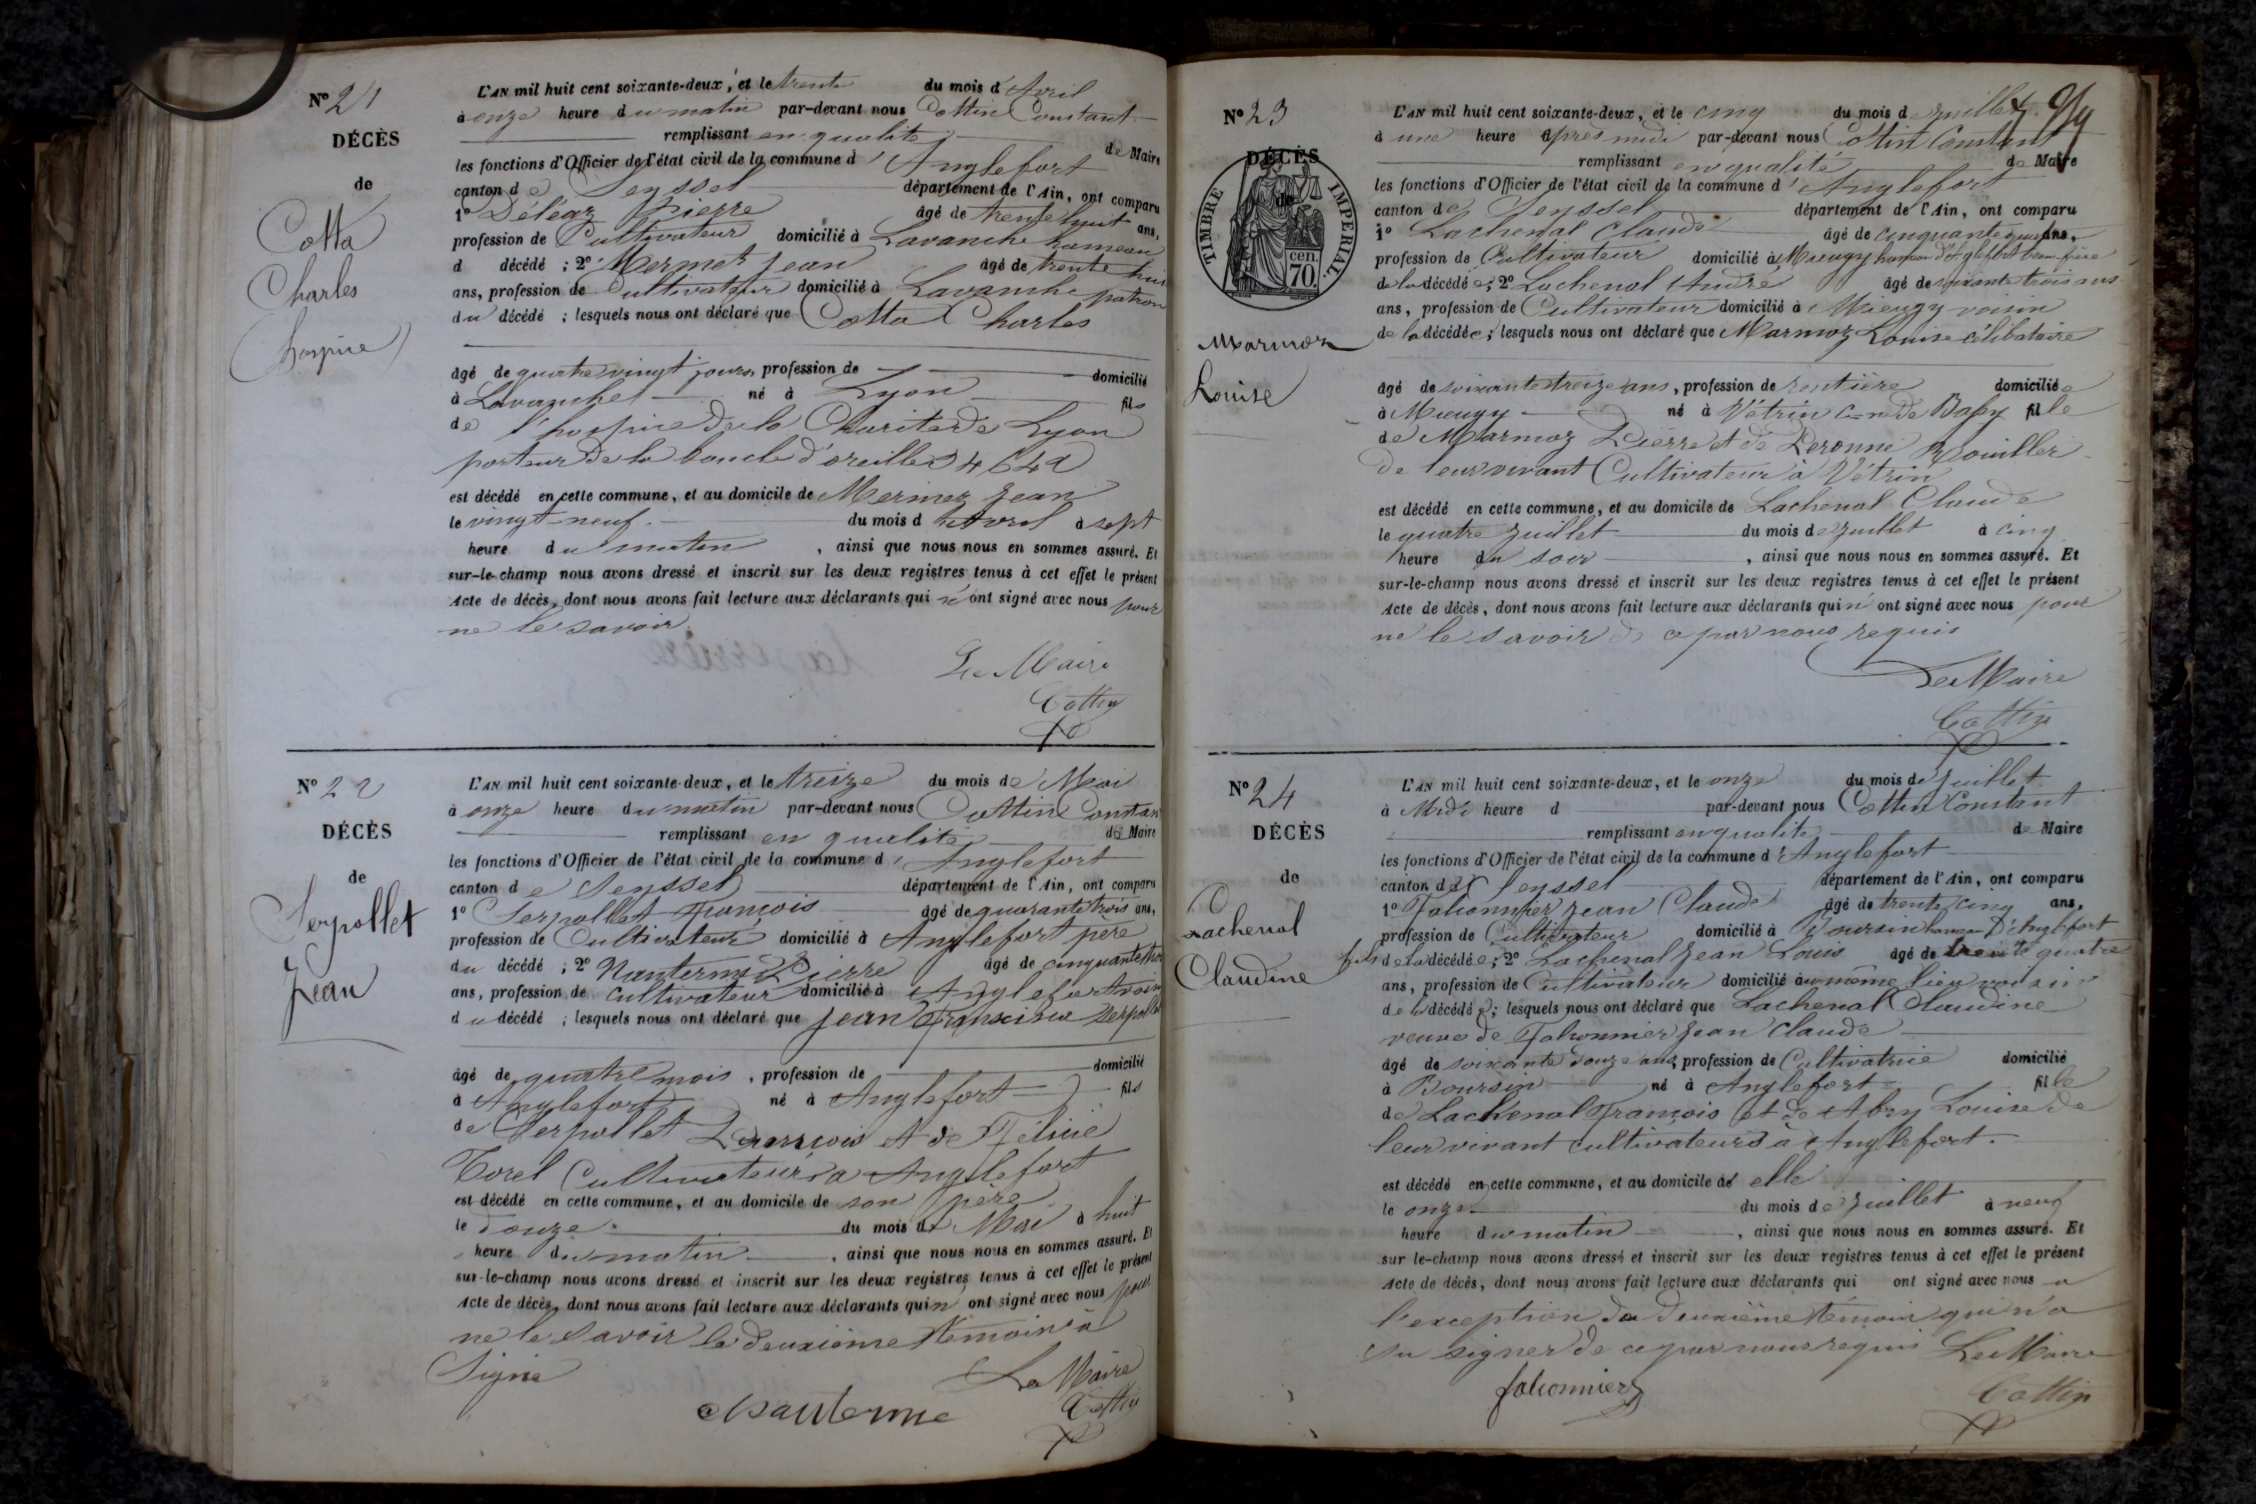 Nº 21
DÉCÈS
de
Cotta
Charles
(hospice)
L'AN mil huit cent soixante-deux, et le trente du mois d'Avril
à onze heure du matin par-devant nous Cottin Constant
remplissant en qualité de Maire
les fonctions d'Officier de l'état civil de la commune d'Anglefort
canton de Seyssel département de l'Ain, ont comparu
1º Délégaz Pierre âgé de trente huit ans,
profession de Cultivateur domicilié à Lavanche hameau
d décédé ; 2º Mermet Jean âgé de trente huit
ans, profession de Cultivateur domicilié à Lavanche patron
du décédé ; lesquels nous ont déclaré que Cotta Charles
âgé de quatre vingt jours, profession de domicilié
à Lavanche né à Lyon fils
de l'hospice de la Charité de Lyon
porteur de la boucle d'oreilles 4642
est décédé en cette commune, et au domicile de Mermet Jean
le vingt-neuf du mois d'Avril à sept
heure du matin, ainsi que nous nous en sommes assuré. Et
sur-le-champ nous avons dressé et inscrit sur les deux registres tenus à cet effet le présent
Acte de décès, dont nous avons fait lecture aux déclarants qui n'ont signé avec nous pour
ne le savoir
Le Maire
Cottin
Nº 22
DÉCÈS
de
Serpollet
Jean
L'AN mil huit cent soixante-deux, et le treize du mois de Mai
à onze heure du matin par-devant nous Cottin Constant
remplissant en qualité de Maire
les fonctions d'Officier de l'état civil de la commune d'Anglefort
canton de Seyssel département de l'Ain, ont comparu
1º Serpollet François âgé de quarante trois ans,
profession de Cultivateur domicilié à Anglefort père
du décédé ; 2º Nanterme Pierre âgé de cinquante
ans, profession de cultivateur domicilié à Anglefort voisin
du décédé ; lesquels nous ont déclaré que Jean Serpollet
âgé de quatre mois, profession de domicilié
à Anglefort né à Anglefort fils
de Serpollet François et de Félicie
Torel Cultivateurs à Anglefort
est décédé en cette commune, et au domicile de son père
le douze du mois de Mai à huit
heure du matin, ainsi que nous nous en sommes assuré. Et
sur-le-champ nous avons dressé et inscrit sur les deux registres tenus à cet effet le présent
Acte de décès, dont nous avons fait lecture aux déclarants qui n'ont signé avec nous pour
ne le savoir le deuxième témoin a
Signé
Le Maire
Nanterme
Cottin
Nº 23
DÉCÈS
de
TIMBRE IMPERIAL.
70. cen.
Marmoz
Louise
L'AN mil huit cent soixante-deux, et le cinq du mois de Juillet
à une heure après midi par-devant nous Cottin Constant
remplissant en qualité de Maire
les fonctions d'Officier de l'état civil de la commune d'Anglefort
canton de Seyssel département de l'Ain, ont comparu
1º Lachenal Claude âgé de cinquante ans,
profession de Cultivateur domicilié à Mieugy hameau d'Anglefort beau-frère
de la décédée ; 2º Lachenal André âgé de soixante trois ans
ans, profession de Cultivateur domicilié à Mieugy voisin
de la décédée ; lesquels nous ont déclaré que Marmoz Louise célibataire
âgé de soixante treize ans, profession de rentière domiciliée
à Mieugy né à Vétrin Cne de Bassy fille
de Marmoz Pierre et de Peronne Rouiller
de leur vivant Cultivateur à Vétrin
est décédé en cette commune, et au domicile de Lachenal Claude
le quatre Juillet du mois de Juillet à cinq
heure du soir, ainsi que nous nous en sommes assuré. Et
sur-le-champ nous avons dressé et inscrit sur les deux registres tenus à cet effet le présent
Acte de décès, dont nous avons fait lecture aux déclarants qui n'ont signé avec nous pour
ne le savoir de ce par nous requis
Le Maire
Cottin
Nº 24
DÉCÈS
de
Lachenal
Claudine
L'AN mil huit cent soixante-deux, et le onze du mois de Juillet
à Midi heure d par-devant nous Cottin Constant
remplissant en qualité de Maire
les fonctions d'Officier de l'état civil de la commune d'Anglefort
canton de Seyssel département de l'Ain, ont comparu
1º Falconnier Jean Claude âgé de trente cinq ans,
profession de Cultivateur domicilié à Boursin hameau D'Anglefort
fils de la décédée ; 2º Lachenal Jean Louis âgé de trente quatre
ans, profession de Cultivateur domicilié au même lieu voisin
de la décédée ; lesquels nous ont déclaré que Lachenal Claudine
veuve de Falconnier Jean Claude
âgé de soixante douze ans, profession de Cultivatrice domicilié
à Boursin né à Anglefort fille
de Lachenal François et de Abry Louise de
leur vivant cultivateurs à Anglefort.
est décédé en cette commune, et au domicile de elle
le onze du mois de Juillet à neuf
heure du matin, ainsi que nous nous en sommes assuré. Et
sur le-champ nous avons dressé et inscrit sur les deux registres tenus à cet effet le présent
Acte de décès, dont nous avons fait lecture aux déclarants qui ont signé avec nous a
l'exception du deuxième témoin qui n'a
su signer de ce par nous requis Le Maire
falconnier
Cottin